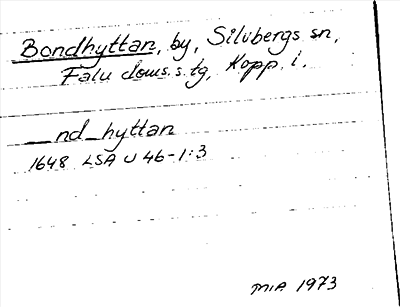 Bondhyttan, by, Silvbergs sn,
Falu doms. s. tg, Kopp. l.
__nd_hyttan
1648 LSA U 46-1:3
MIA 1973